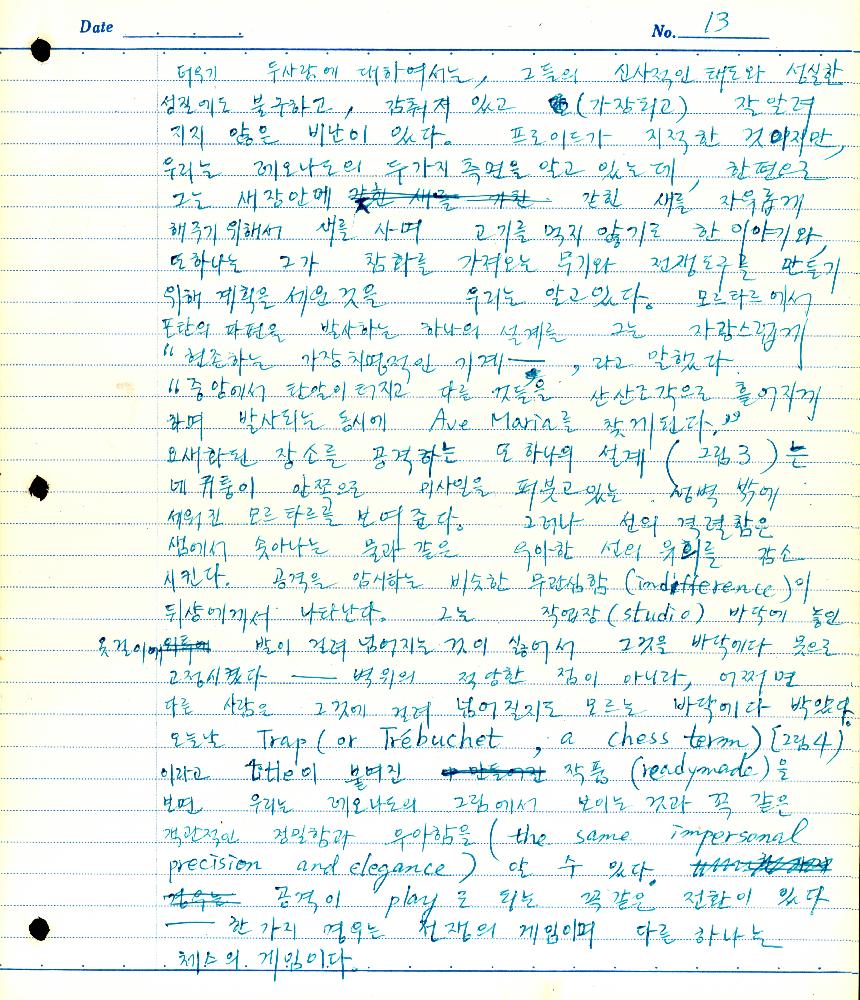 Date
No. 13
더우기 두사람에 대하여서는, 그들의 신사적인 태도와 성실한
성질에도 불구하고, 감춰져 있고 (가장되고) 잘 알려
지지 않은 비난이 있다. 프로이드가 지적한 것이지만,
우리는 레오나도의 두가지 측면을 알고 있는데, 한편으로
그는 새장안에 갇힌 새를 자유롭게
해주기 위해서 새를 사며 고기를 먹지 않기로 한 이야기와,
또하나는 그가 참화를 가져오는 무기와 전쟁도구를 만들기
위해 계획을 세운 것을 우리는 알고있다. 모르타르에서
포탄의 파편을 발사하는 하나의 설계를 그는 자랑스럽게
"현존하는 가장 치명적인 기계 —, 라고 말했다.
"중앙에서 탄알이 터지고 다른 것들을 산산조각으로 흩어지게
하며 발사되는 동시에 Ave Maria를 찾게된다."
요새화된 장소를 공격하는 또 하나의 설계 (그림 3)는
네 귀퉁이 안쪽으로 미사일을 퍼붓고 있는 성벽 밖에
세워진 모르타르를 보여준다. 그러나 선의 격렬함은
샘에서 솟아나는 물과 같은 우아한 선의 유희를 감소
시킨다. 공격을 암시하는 비슷한 무관심함 (indifference)이
뒤샹에게서 나타난다. 그는 작업장 (studio) 바닥에 놓인
옷걸이에 발이 걸려 넘어지는 것이 싫어서 그것을 바닥에다 못으로
고정시켰다 — 벽위의 적당한 점이 아니라, 어쩌면
다른 사람은 그것에 걸려 넘어질지도 모르는 바닥에다 박았다.
오늘날 Trap (or Trébuchet, a chess term) [그림 4]
이라고 title이 붙여진 작품 (readymade)을
보면 우리는 레오나도의 그림에서 보이는 것과 꼭 같은
객관적인 정밀함과 우아함을 (the same impersonal
precision and elegance) 알 수 있다.
공격이 play로 되는 꼭같은 전환이 있다
— 한가지 경우는 전쟁의 게임이며 다른 하나는
체스의 게임이다.